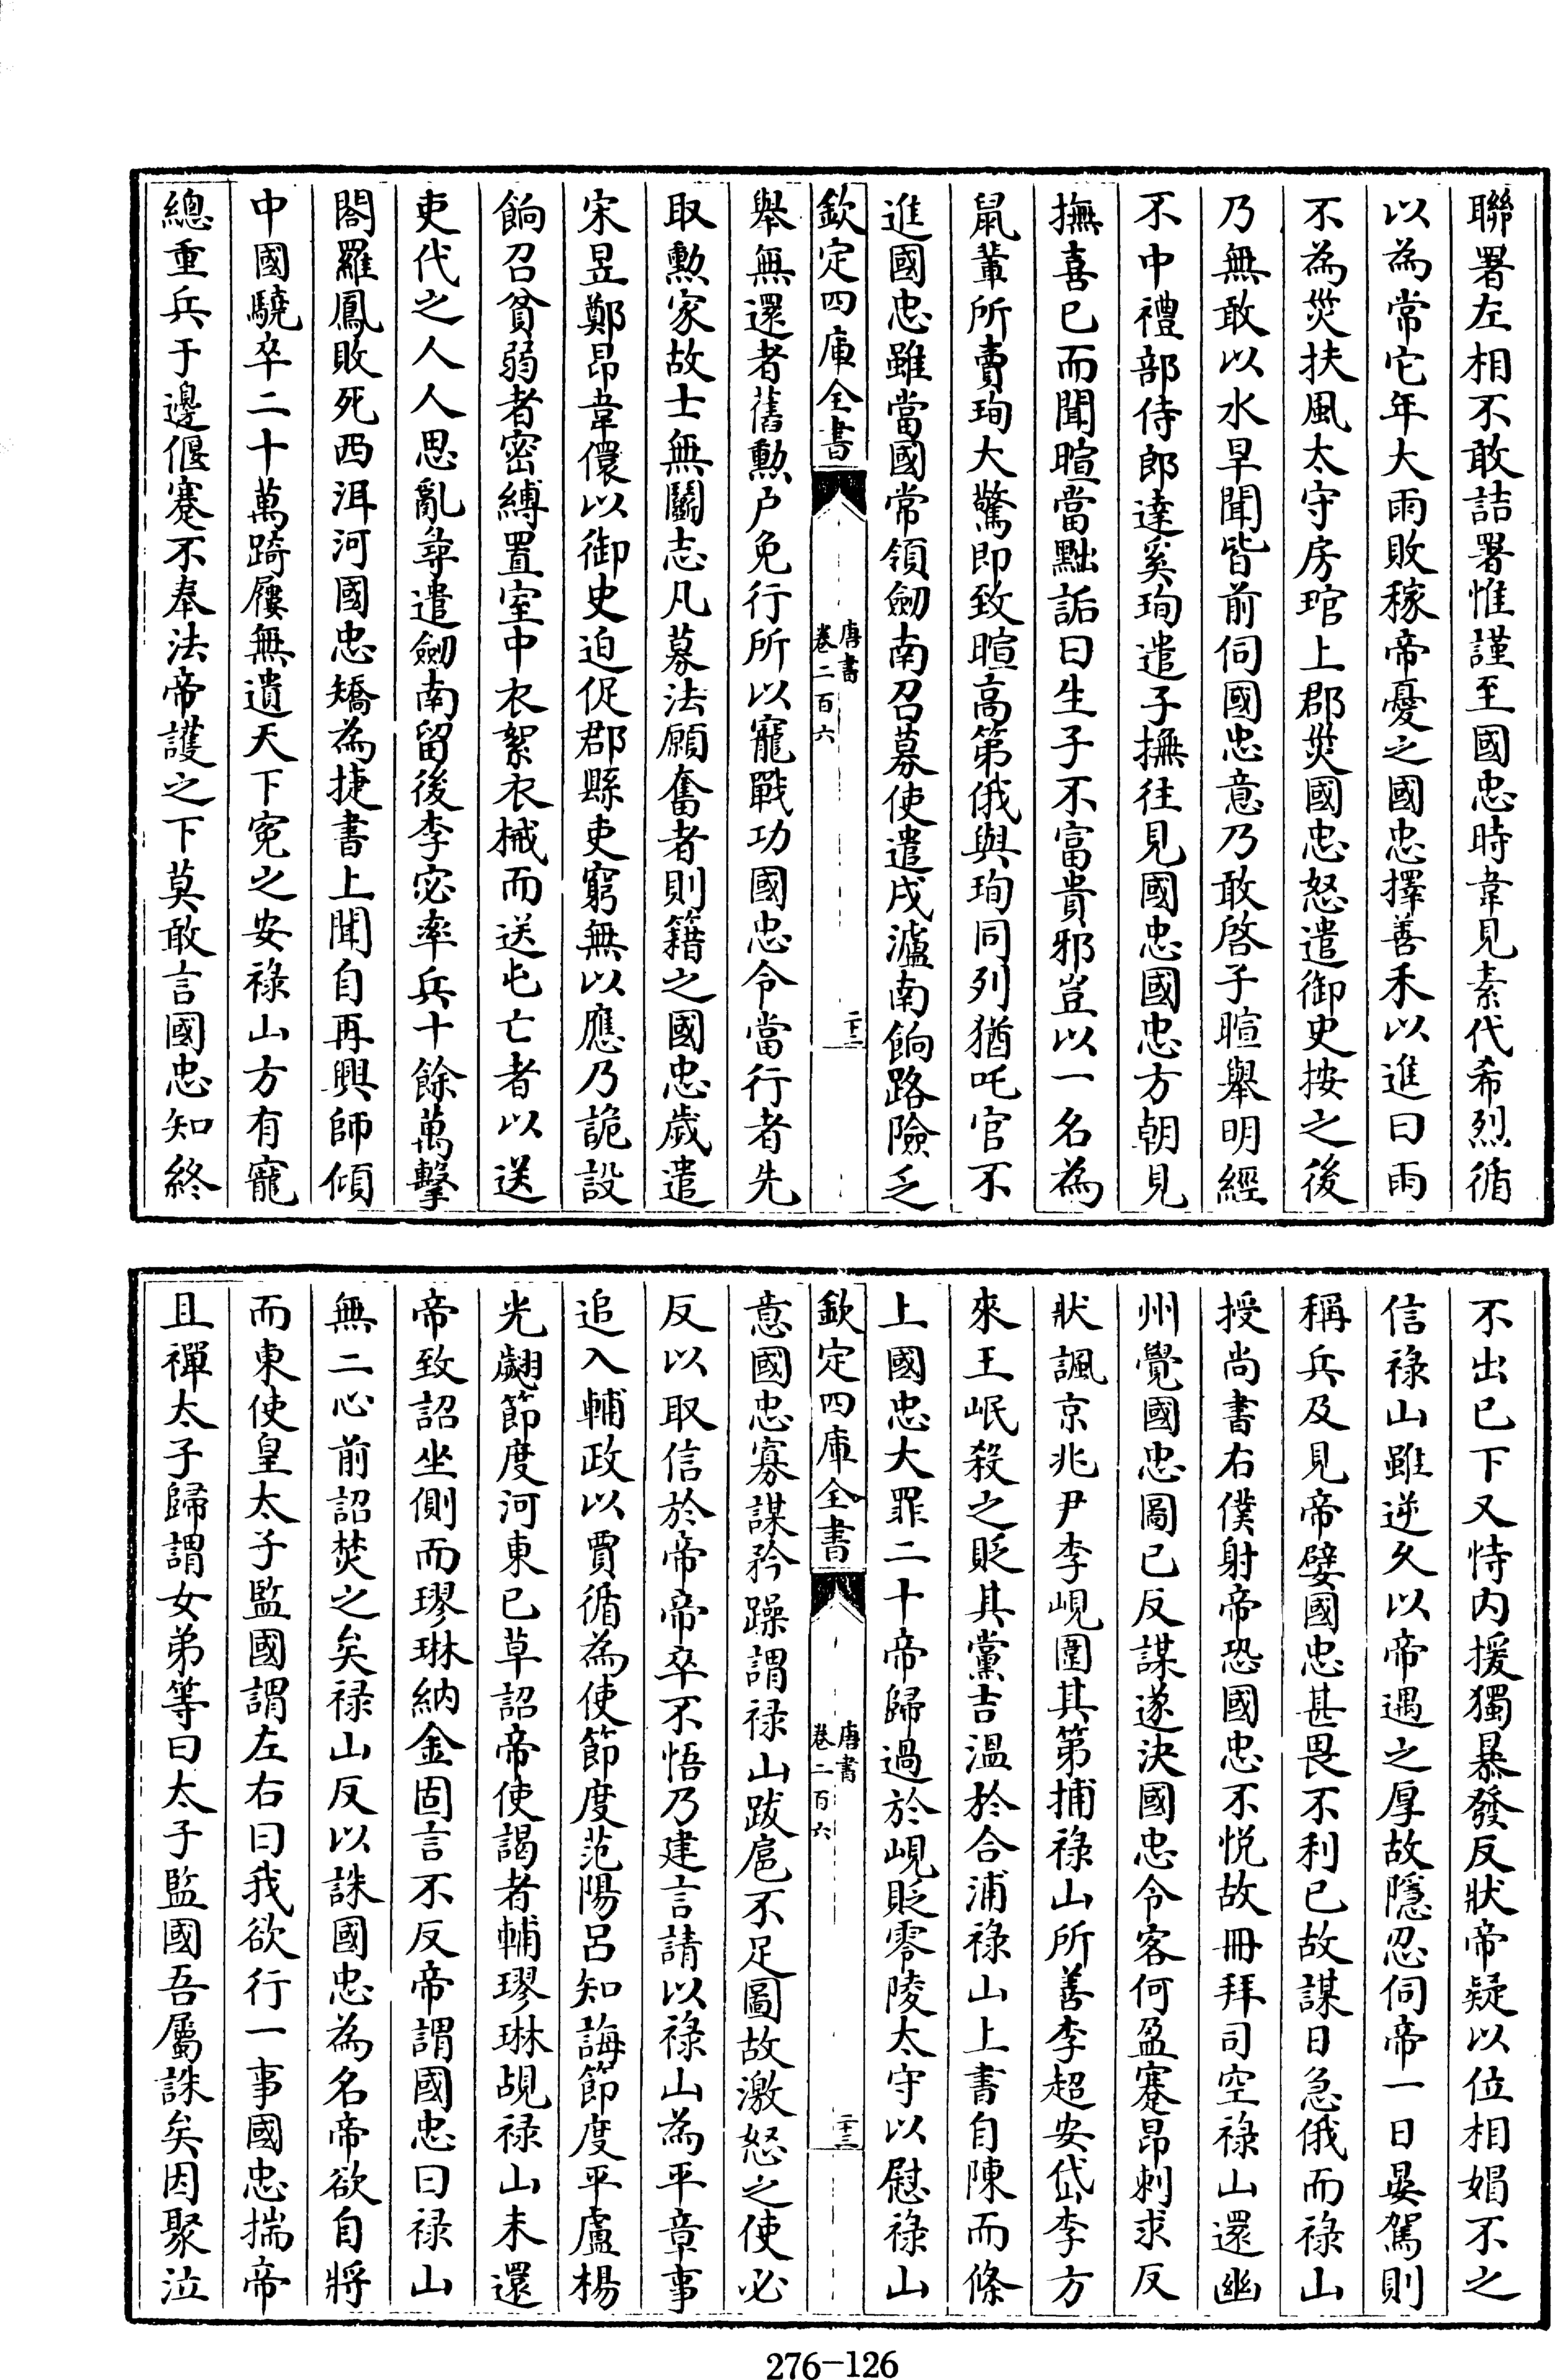 聯署左相不敢詰署惟謹至國忠時韋見素代希烈循
以為常它年大雨敗稼帝憂之國忠擇善禾以進曰雨
不為災扶風太守房琯上郡災國忠怒遣御史按之後
乃無敢以水旱聞皆前伺國忠意乃敢啓子暄舉明經
不中禮部侍郎達奚珣遣子撫往見國忠國忠方朝見
撫喜已而聞暄當黜詬曰生子不富貴邪豈以一名為
鼠輩所賣珣大驚即致暄高第俄與珣同列猶吒官不
進國忠雖當國常領劒南召募使遣戍瀘南餉路險乏
欽定四庫全書
唐書
卷二百六
二十三
舉無還者舊勲户免行所以寵戰功國忠令當行者先
取勲家故士無鬭志凡募法願奮者則籍之國忠歲遣
宋昱鄭昂韋儇以御史迫促郡縣吏窮無以應乃詭設
餉召貧弱者密縛置室中衣絮衣械而送屯亡者以送
吏代之人人思亂尋遣劒南留後李宓率兵十餘萬擊
閤羅鳳敗死西洱河國忠矯為捷書上聞自再興師傾
中國驍卒二十萬踦屨無遺天下寃之安禄山方有寵
總重兵于邊偃蹇不奉法帝護之下莫敢言國忠知終
不出已下又恃内援獨暴發反狀帝疑以位相娼不之
信禄山雖逆久以帝遇之厚故隱忍伺帝一日晏駕則
稱兵及見帝嬖國忠甚畏不利已故謀日急俄而禄山
授尚書右僕射帝恐國忠不悦故冊拜司空禄山還幽
州覺國忠圖已反謀遂決國忠令客何盈蹇昂刺求反
狀諷京兆尹李峴圍其第捕禄山所善李超安岱李方
來王岷殺之貶其黨吉溫於合浦禄山上書自陳而條
上國忠大罪二十帝歸過於峴貶零陵太守以慰禄山
欽定四庫全書
唐書
卷二百六
二十三
意國忠寡謀矜躁謂禄山跋扈不足圖故激怒之使必
反以取信於帝帝卒不悟乃建言請以禄山為平章事
追入輔政以賈循為使節度范陽呂知誨節度平盧楊
光翽節度河東已草詔帝使謁者輔璆琳覘禄山未還
帝致詔坐側而璆琳納金固言不反帝謂國忠曰禄山
無二心前詔焚之矣禄山反以誅國忠為名帝欲自將
而東使皇太子監國謂左右曰我欲行一事國忠揣帝
且禪太子歸謂女弟等曰太子監國吾屬誅矣因聚泣
276-126